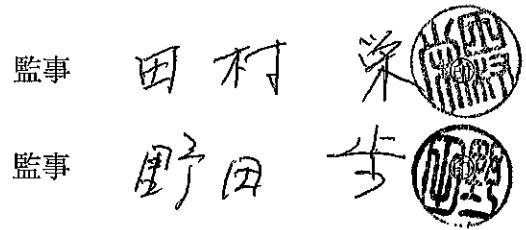 監事 田村 栄
監事 野田 歩